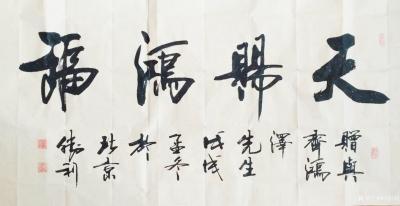 天賜鴻福
贈與
齊鴻
澤
先生
戊戌
孟冬
於
北京
勝利